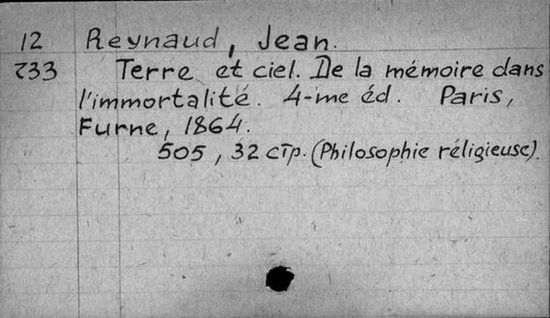 12 Reynaud, Jean.
733 Terre et ciel. De la mémoire dans
l'immortalité. 4-me éd. Paris,
Furne, 1864.
505, 32 стр. (Philosophie réligieuse).